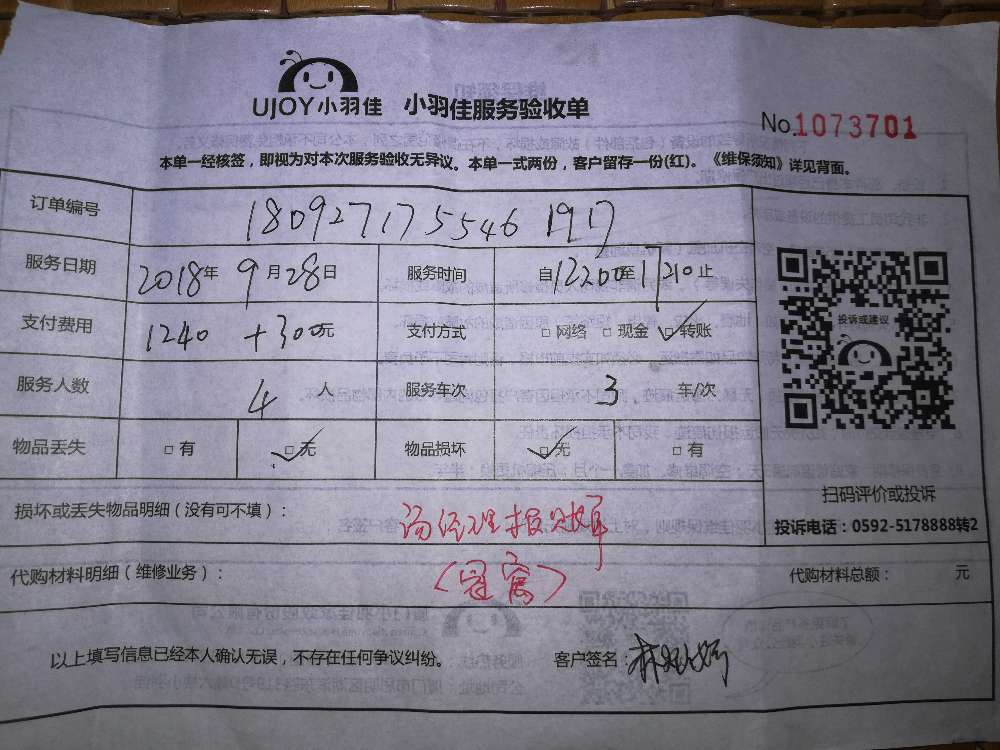 UJOY小羽佳 小羽佳服务验收单
No.1073701
本单一经核签，即视为对本次服务验收无异议。本单一式两份，客户留存一份(红)。《维保须知》详见背面。
订单编号 180927175546 1917
服务日期 2018年9月28日 服务时间 自12200至17210止
支付费用 1240 +300元 支付方式 □网络 □现金 ☑转账
服务人数 4人 服务车次 3 车/次
物品丢失 □有 ☑无 物品损坏 ☑无 □有
投诉或建议
扫码评价或投诉
投诉电话：0592-5178888转2
损坏或丢失物品明细(没有可不填)： 汤经理报
代购材料明细(维修业务)： 代购材料总额： 元
以上填写信息已经本人确认无误，不存在任何争议纠纷。 客户签名：林